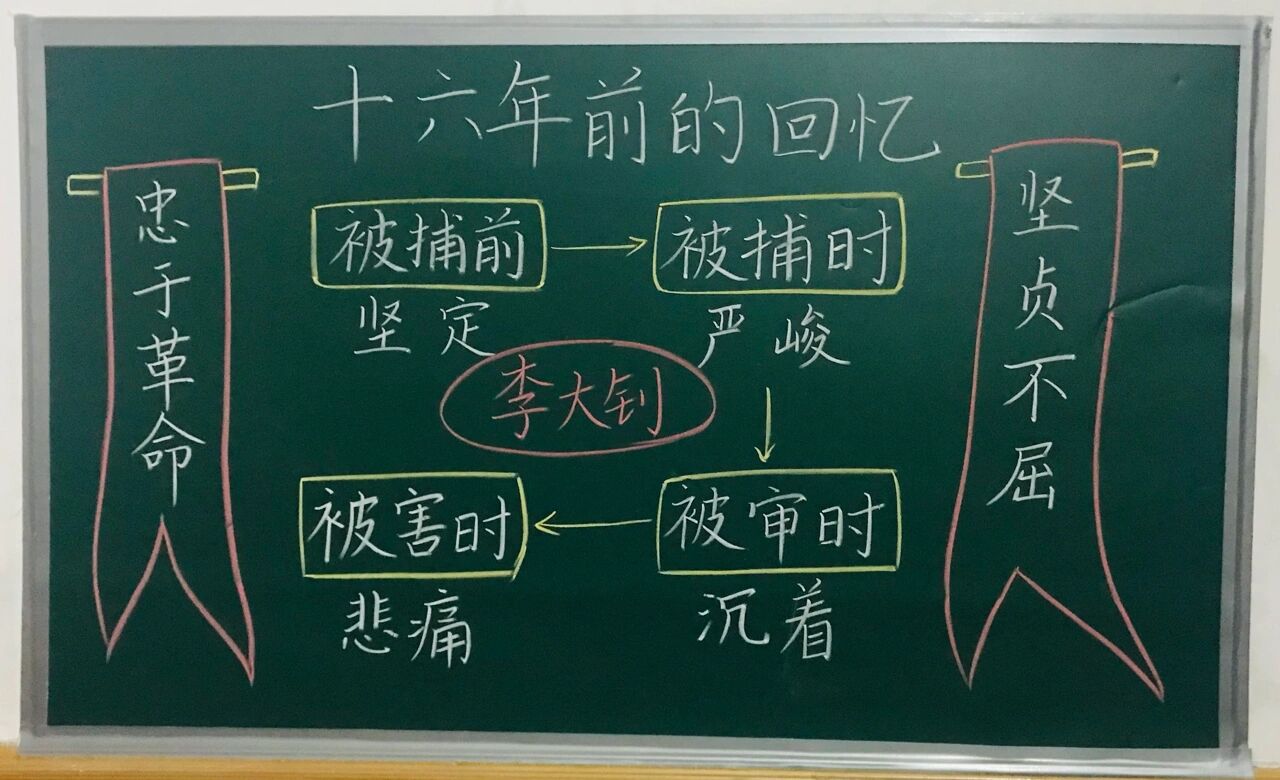 十六年前的回忆
忠于革命
被捕前
被捕时
坚定
严峻
李大钊
被害时
被审时
悲痛
沉着
坚贞不屈